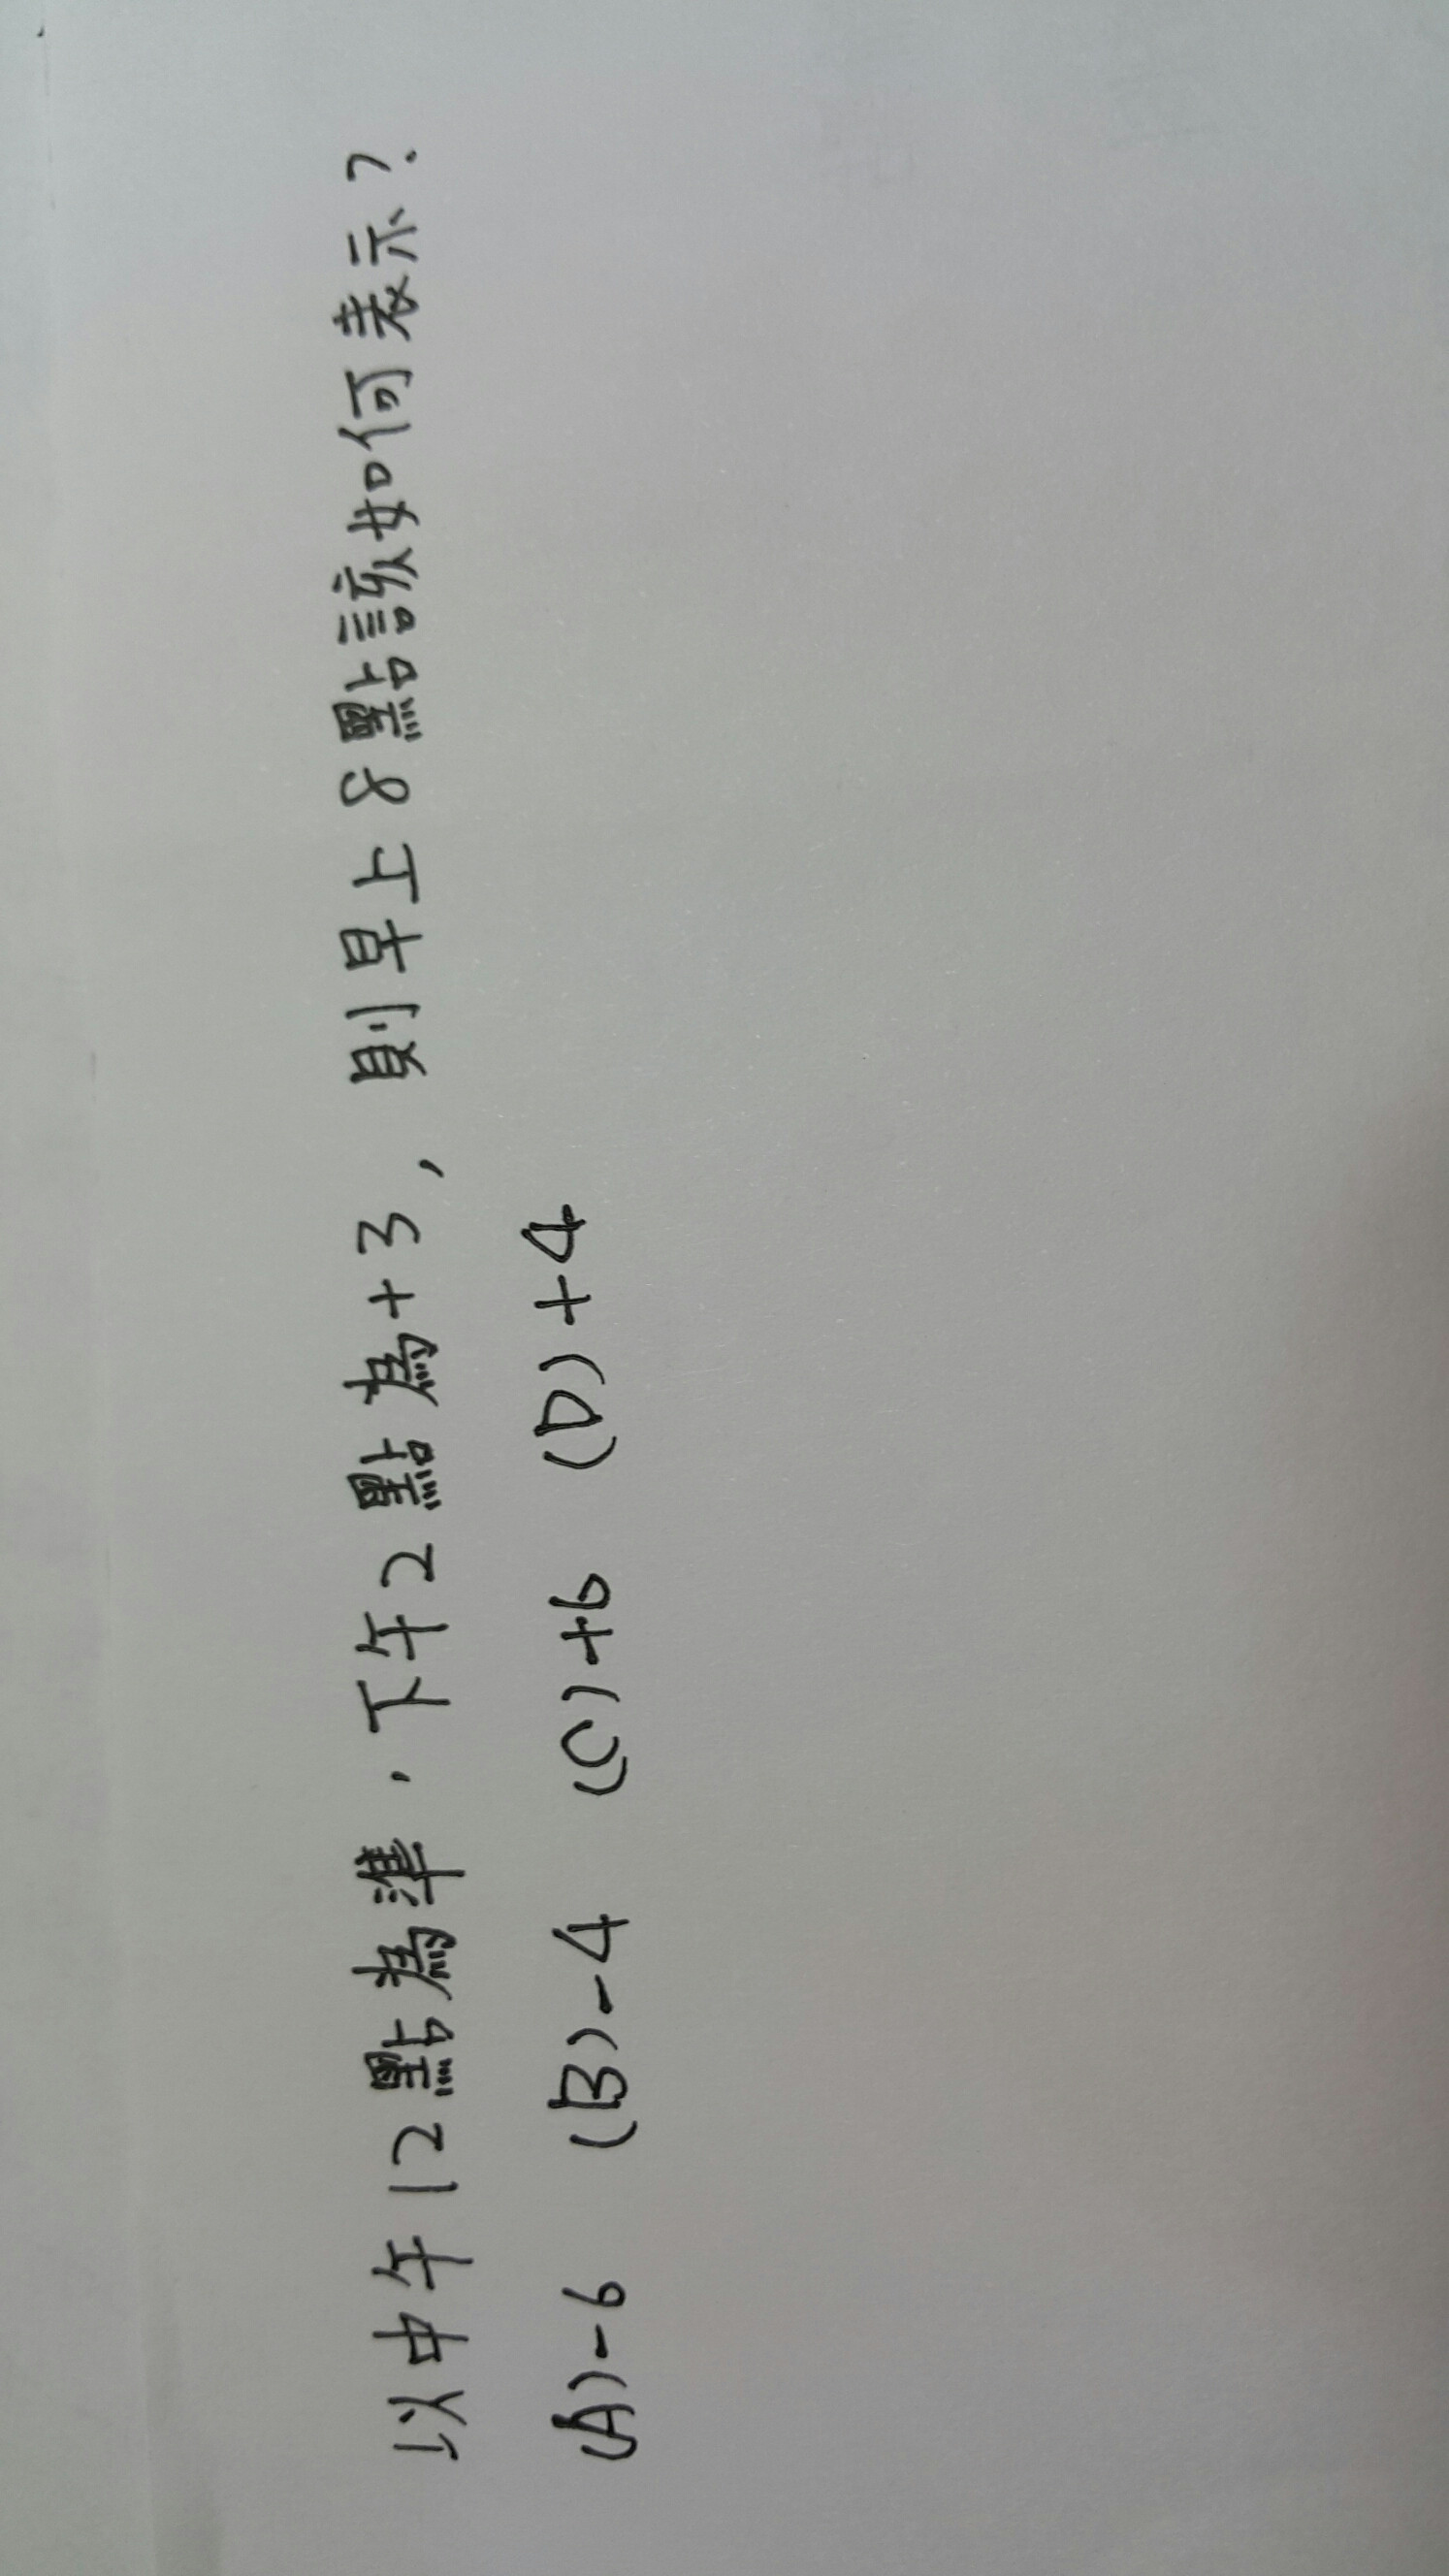 以中午12點為準，下午2點為+3，則早上8點該如何表示？
(A)-6 (B)-4 (C)+6 (D)+4